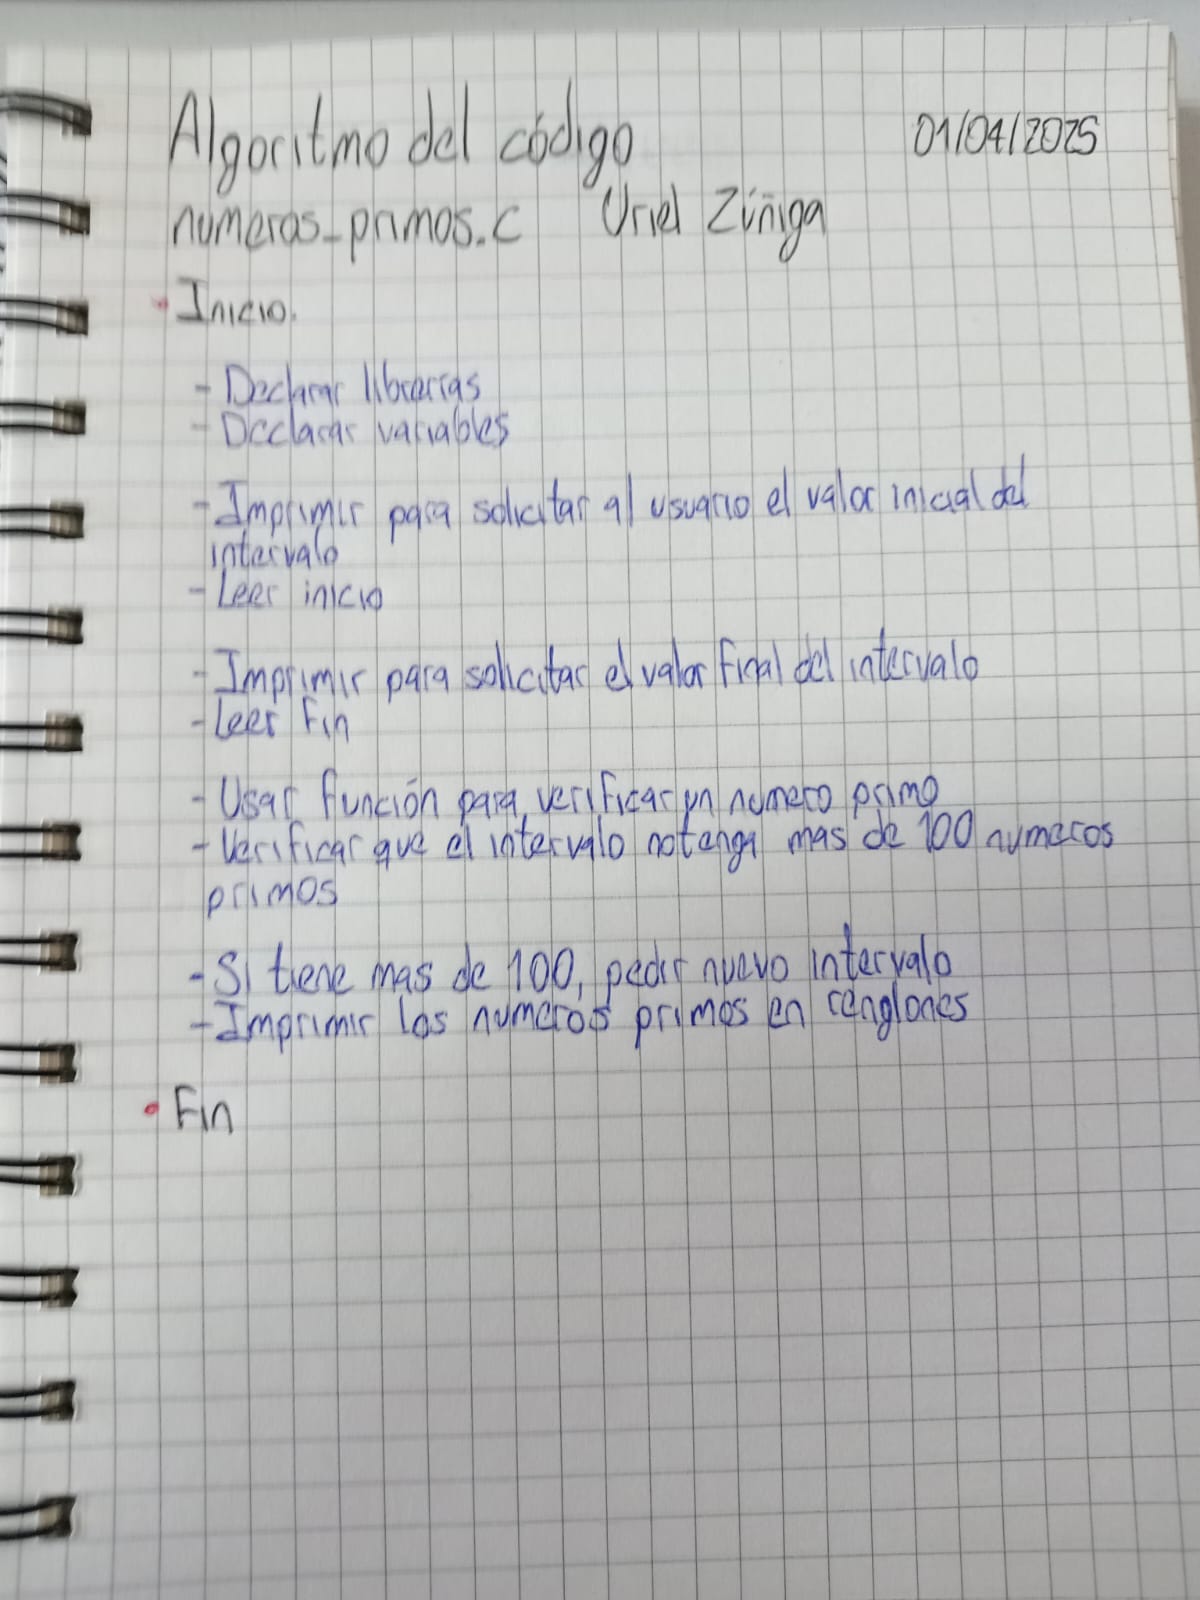 Algoritmo del código 01/04/2025
numeros_primos.c Uriel Zúñiga
• Inicio.
- Declarar librerias
- Declarar variables
- Imprimir para solicitar al usuario el valor inicial del
intervalo
- Leer inicio
- Imprimir para solicitar el valor final del intervalo
- Leer Fin
- Usar función para verificar un numero primo
- Verificar que el intervalo no tenga mas de 100 numeros
primos
- Si tiene mas de 100, pedir nuevo intervalo
- Imprimir los numeros primos en renglones
• Fin